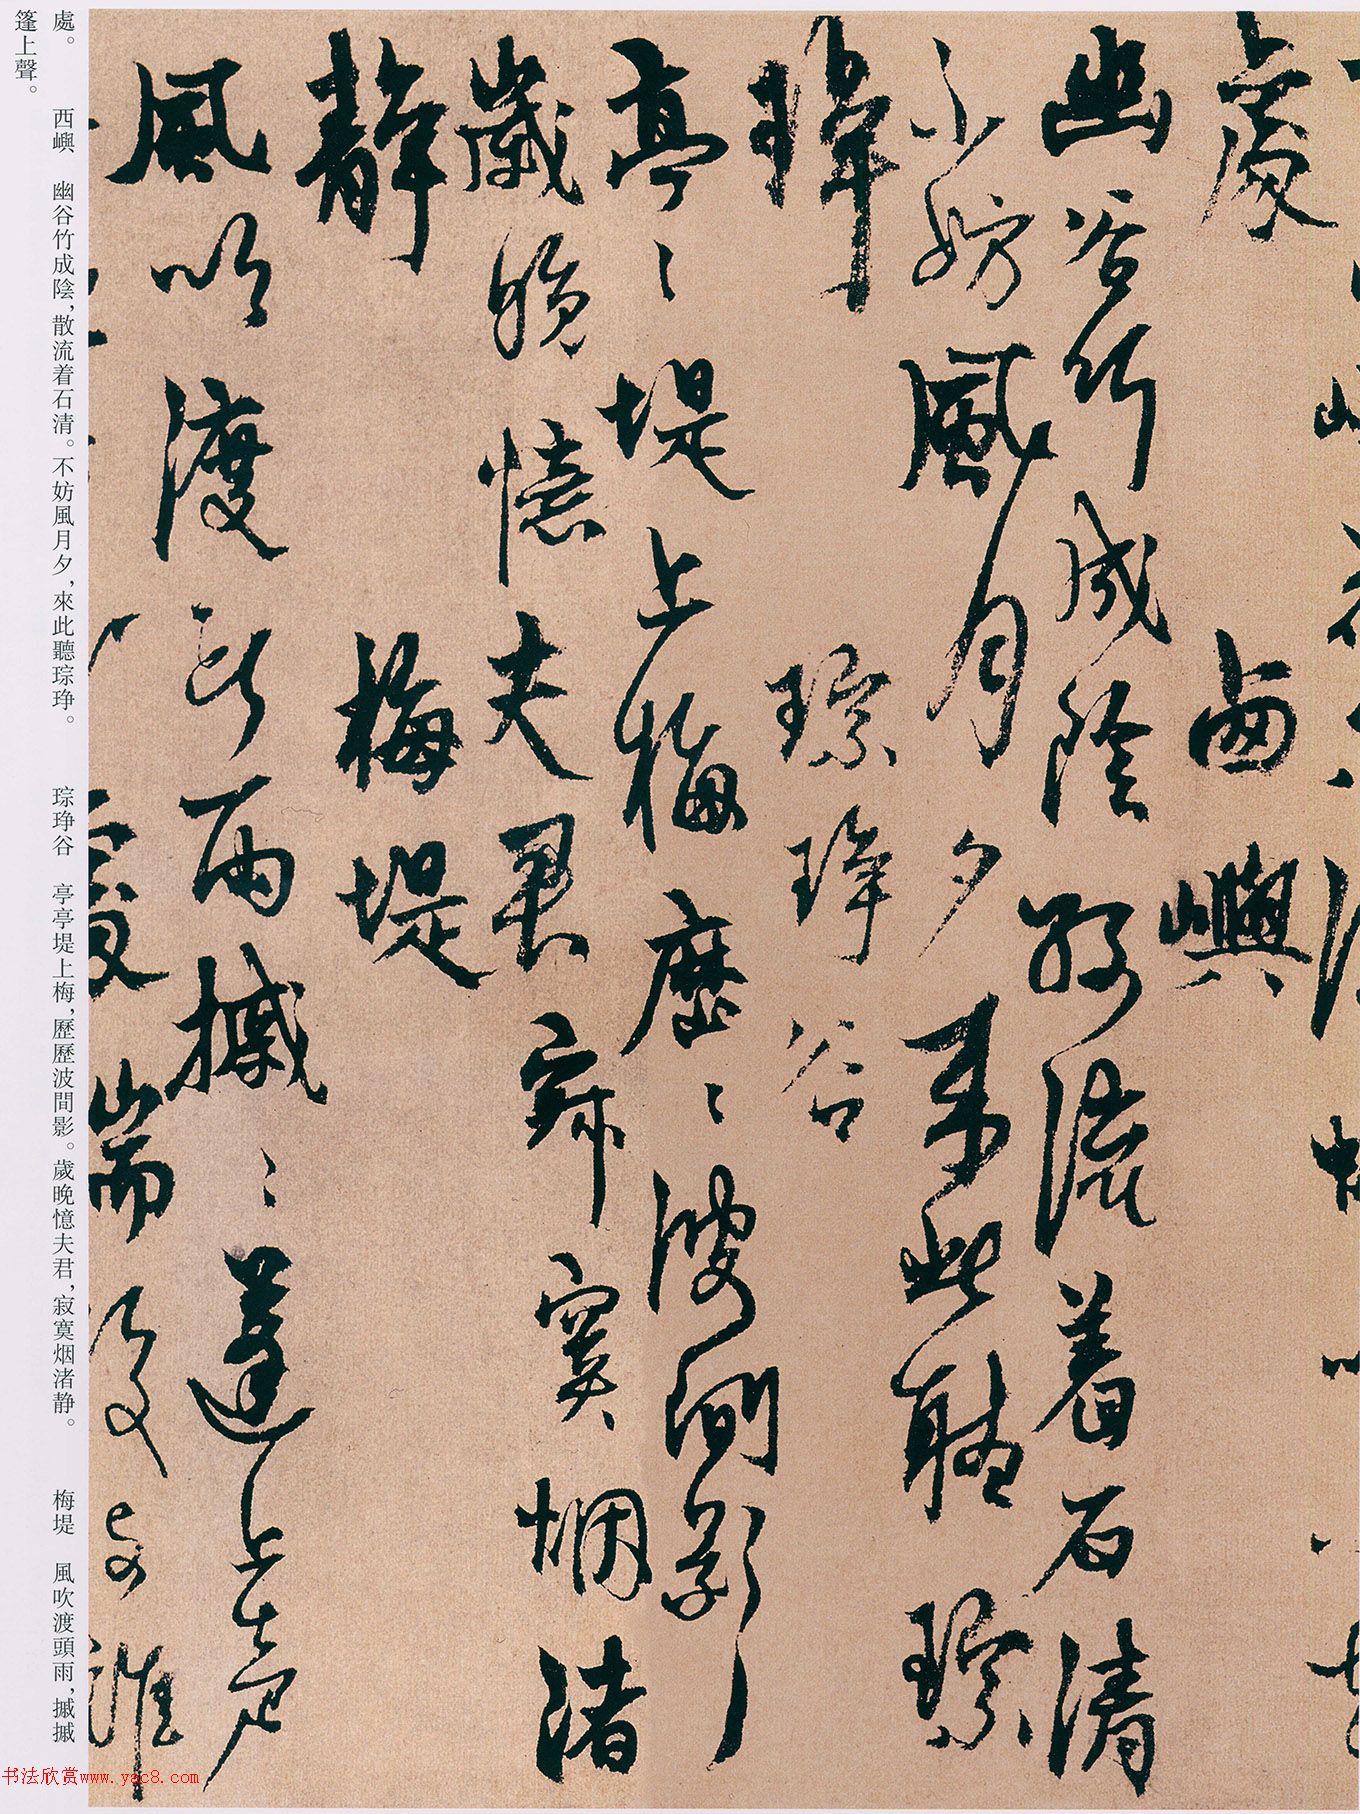 處
西嶼
幽谷竹成陰散流着石清
不妨風月夕來此聽琮
琤
琮琤谷
亭〻堤上梅歷〻波間影
歲晚憶夫君寂寞烟渚
靜
梅堤
風吹渡頭雨摵〻篷上聲
處。 西嶼 幽谷竹成陰，散流着石清。不妨風月夕，來此聽琮琤。 琮琤谷 亭亭堤上梅，歷歷波間影。歲晚憶夫君，寂寞烟渚静。 梅堤 風吹渡頭雨，摵摵
篷上聲。
书法欣赏www.yac8.com